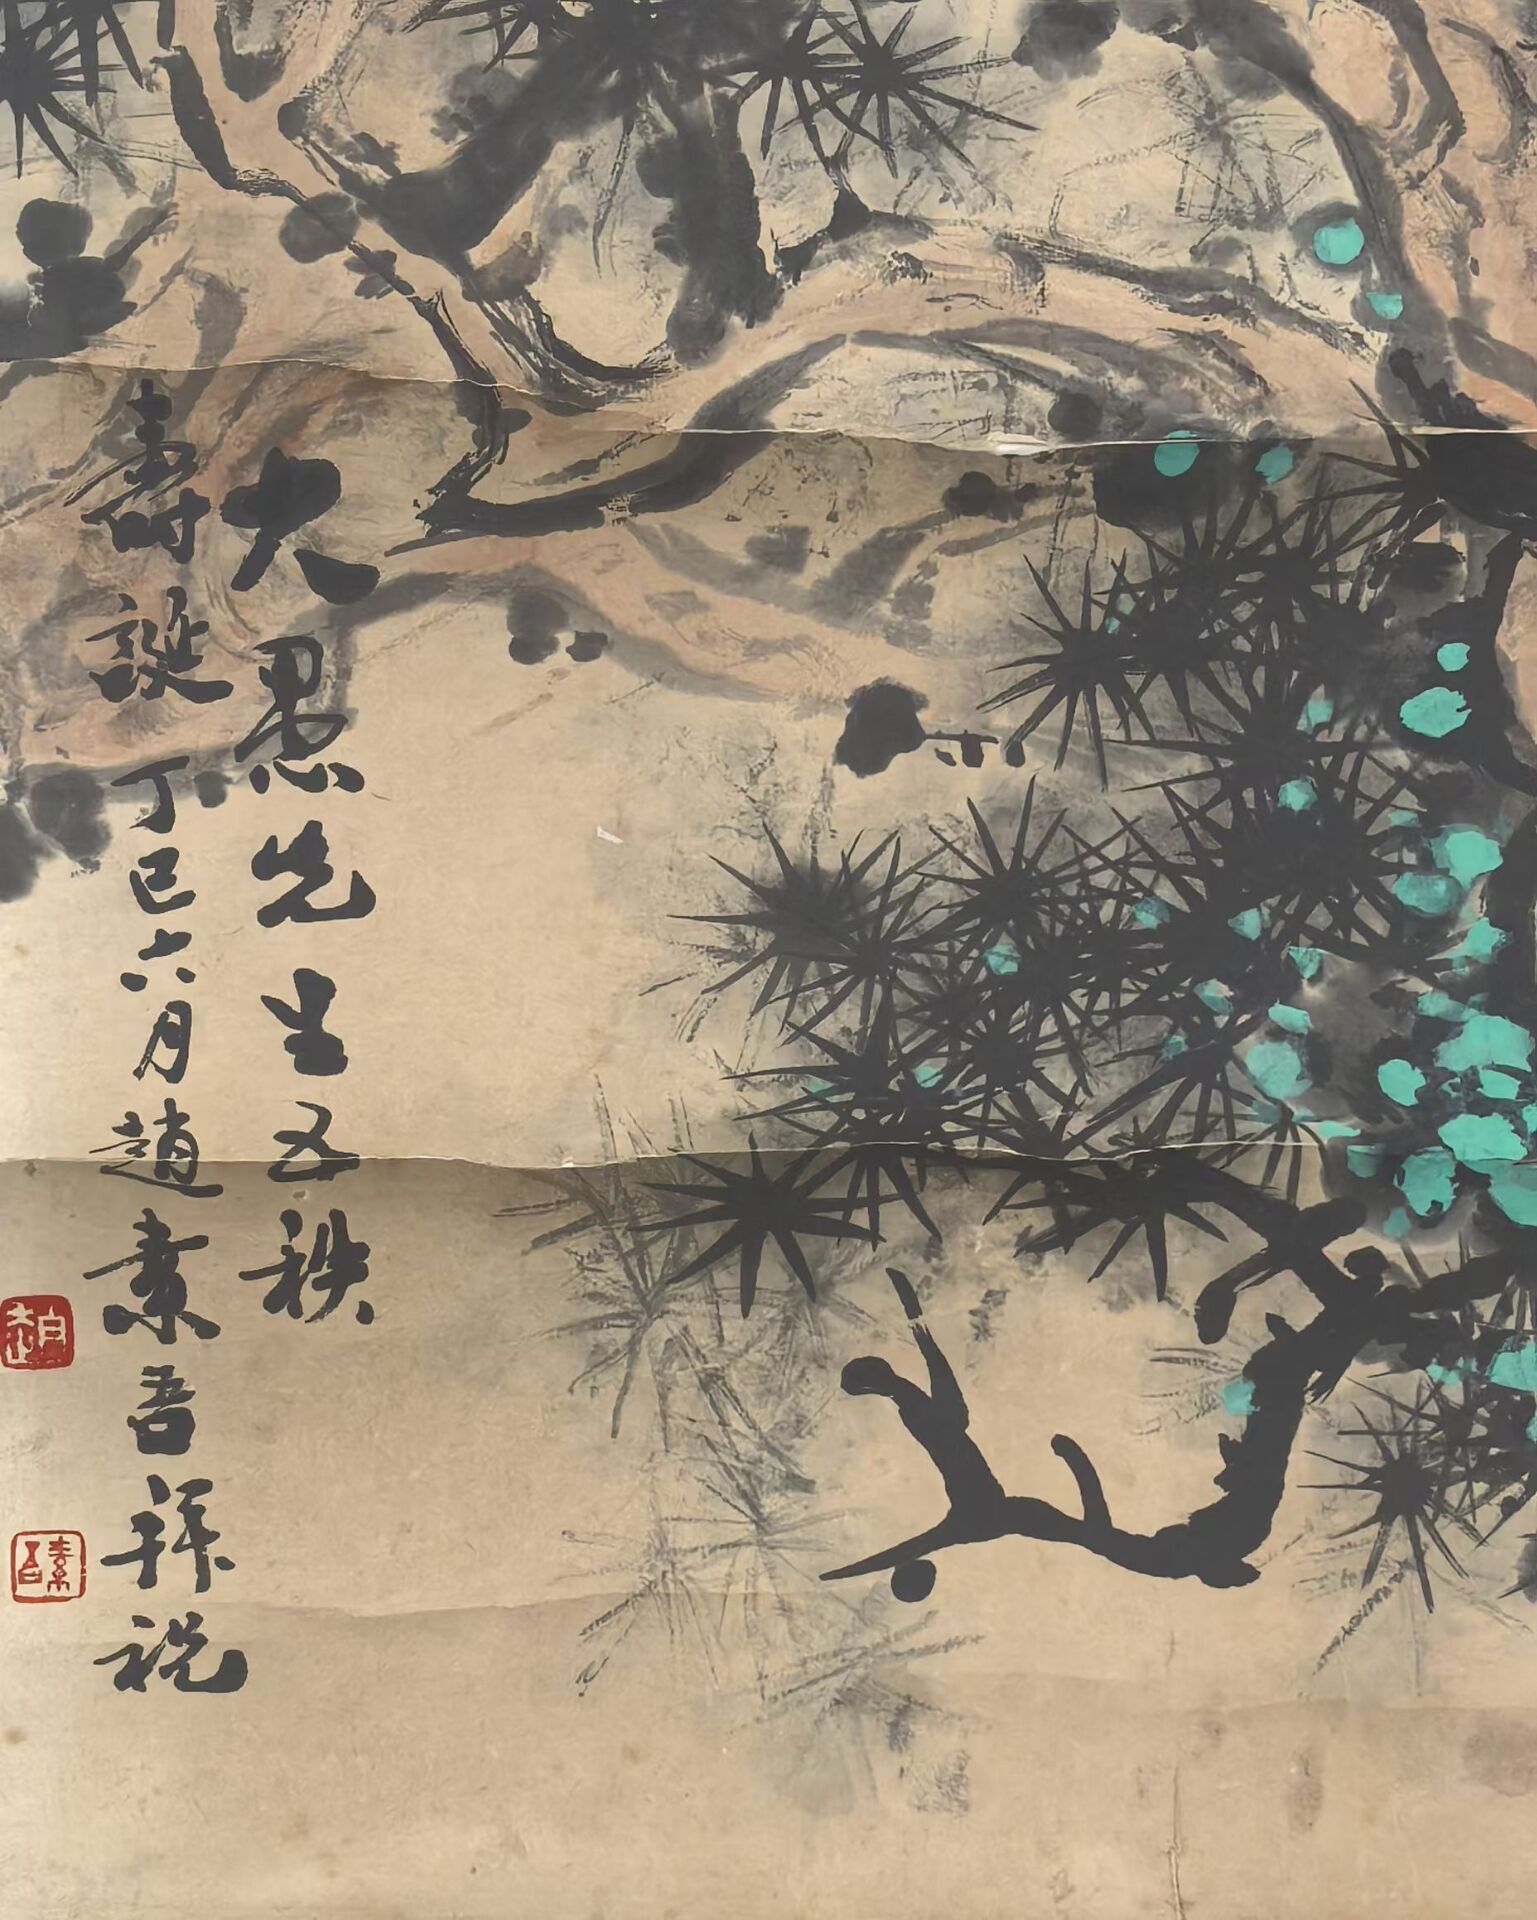 大愚先生五秩
壽誕丁巳六月趙素吾拜祝
素吾